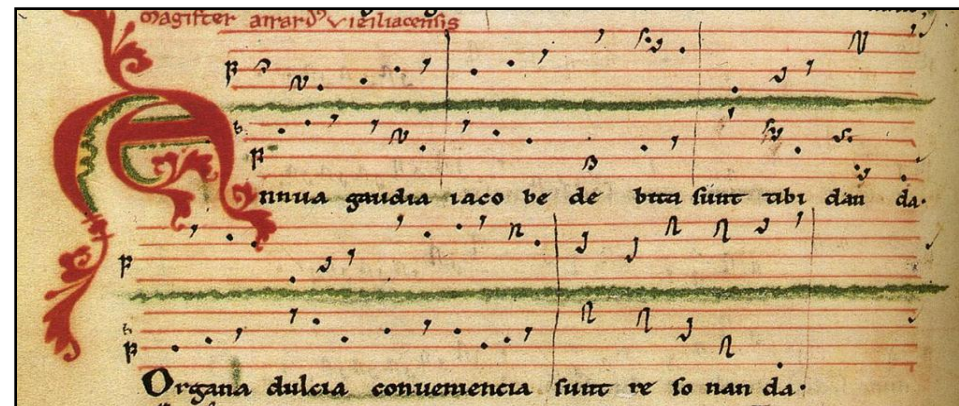 Magister airardus vieiliacensis
Annua gaudia iaco be de bita sunt tibi dan da.
Organa dulcia conueniencia sunt re so nan da.